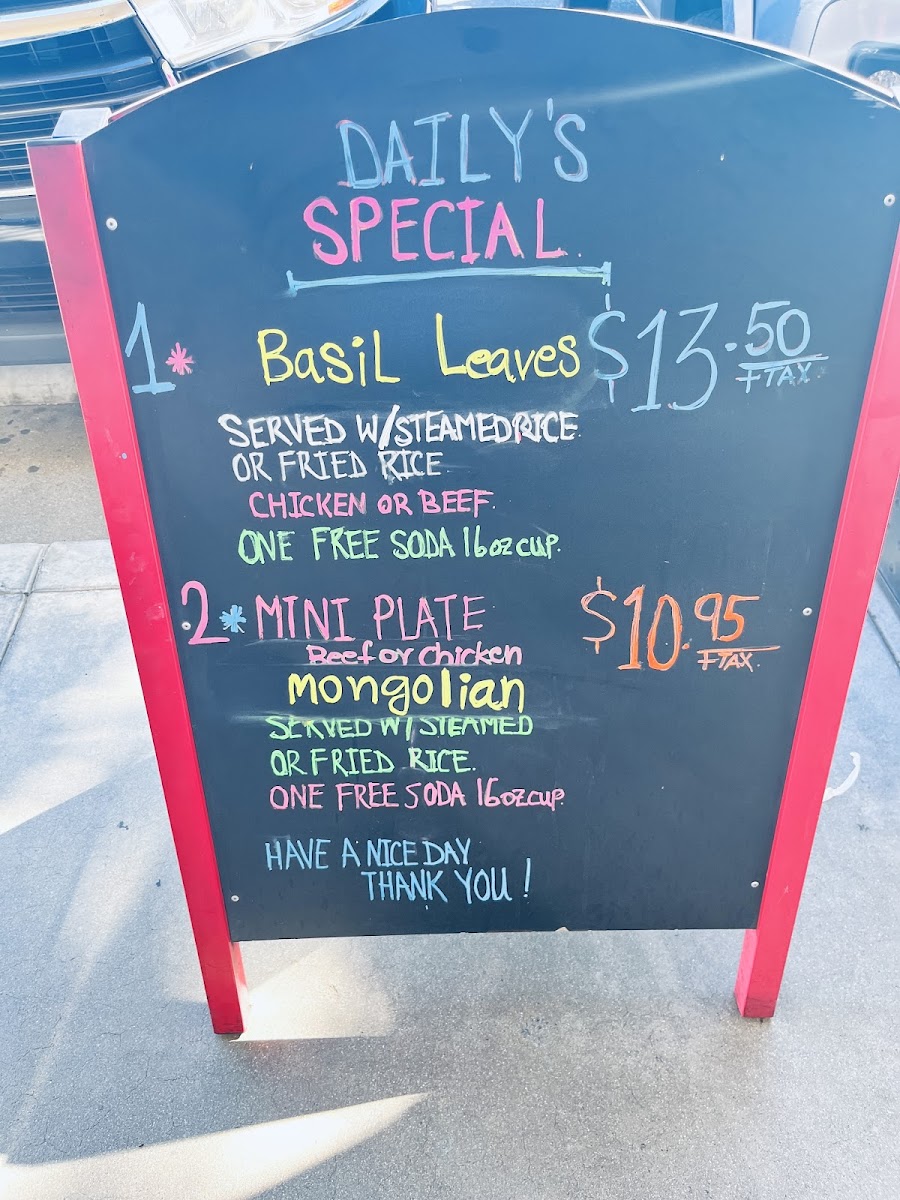 DAILY'S
SPECIAL
1* Basil Leaves $13.50
+TAX.
SERVED W/STEAMED RICE
OR FRIED RICE
CHICKEN OR BEEF.
ONE FREE SODA 16oz cup.
2* MINI PLATE $10.95
+TAX.
Beef or Chicken
Mongolian
SERVED W/ STEAMED
OR FRIED RICE.
ONE FREE SODA 16oz cup.
HAVE A NICE DAY
THANK YOU!